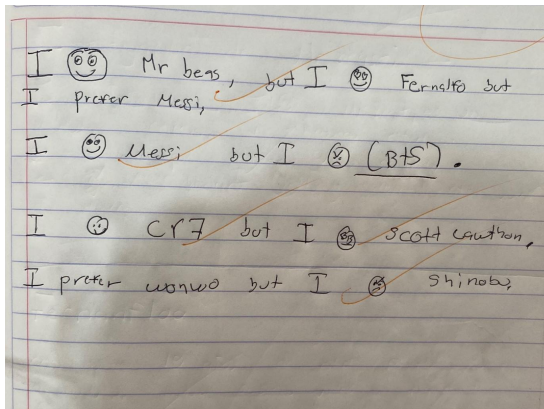 I Mr beas, but I Fernalfo but
I prefer Messi,
I Messi but I (BtS).
I Cr7 but I Scott cawthon,
I prefer wonwo but I Shinobu,